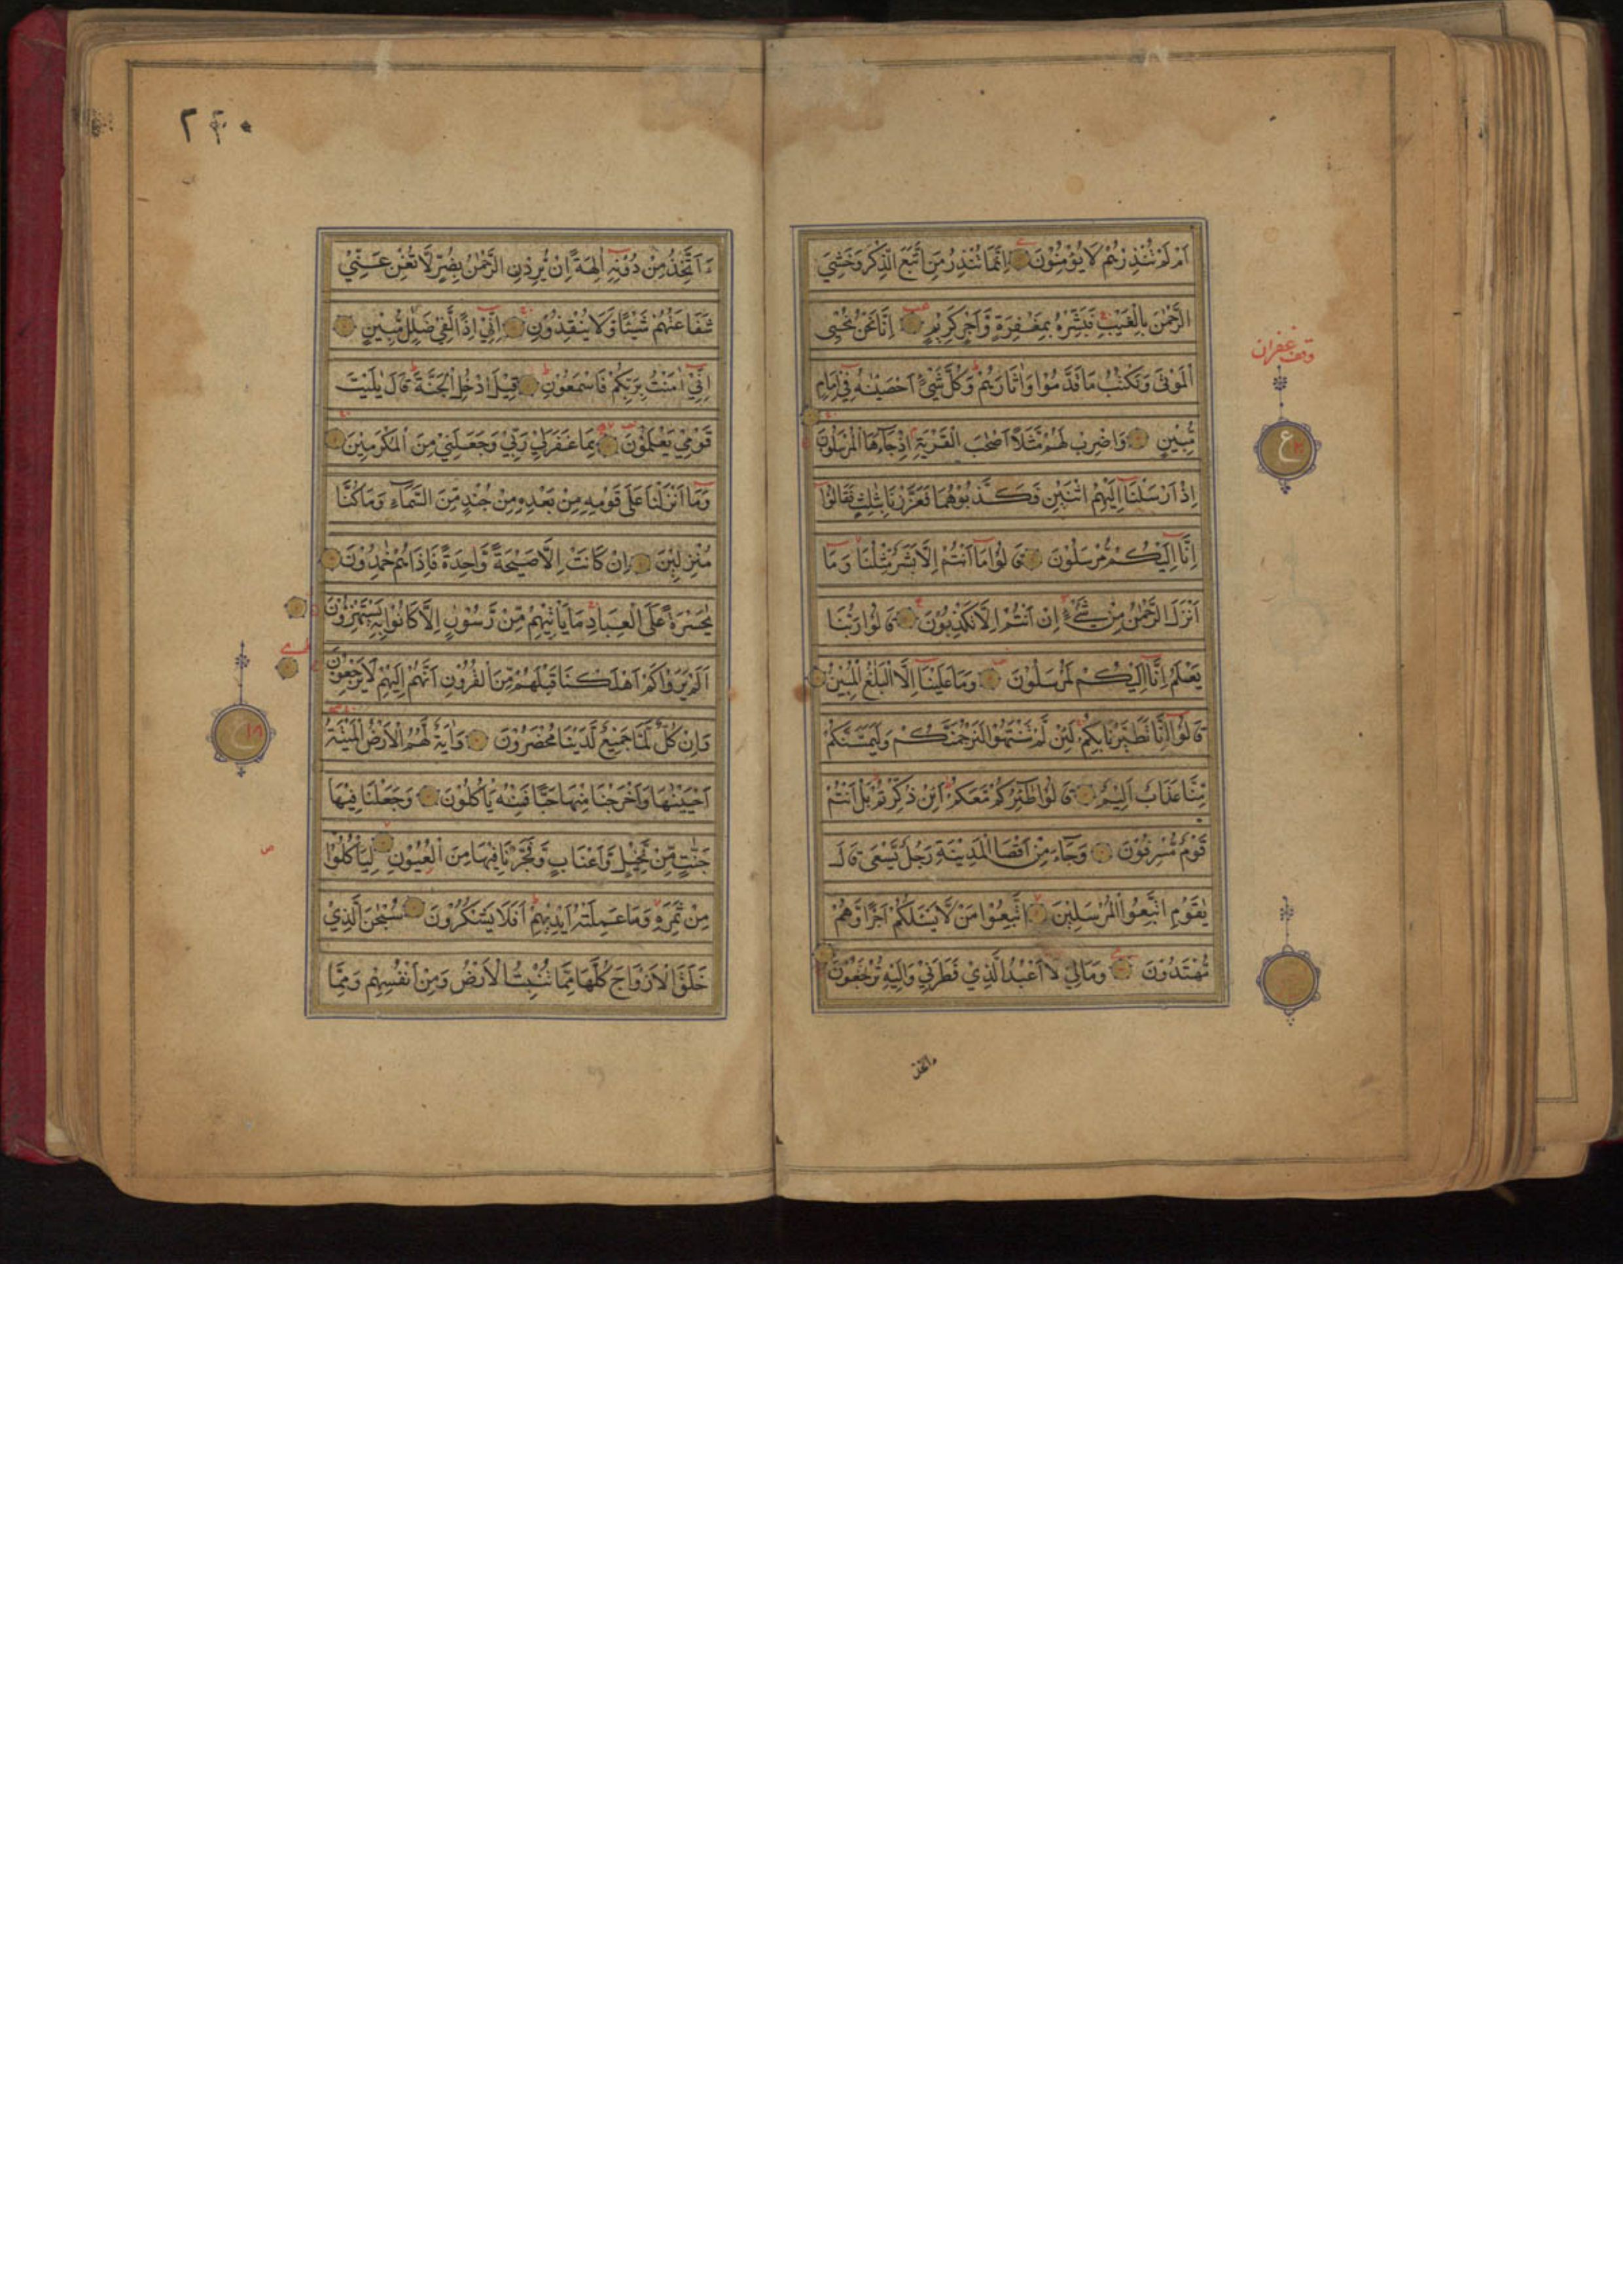 اَمْ لَمْ تُنْذِرْهُمْ لَا يُؤْمِنُوْنَ اِنَّمَا تُنْذِرُ مَنِ اتَّبَعَ الذِّكْرَ وَخَشِيَ
الرَّحْمٰنَ بِالْغَيْبِ فَبَشِّرْهُ بِمَغْفِرَةٍ وَّاَجْرٍ كَرِيْمٍ اِنَّا نَحْنُ نُحْيِ
الْمَوْتٰى وَنَكْتُبُ مَا قَدَّمُوْا وَاٰثَارَهُمْ وَكُلَّ شَيْءٍ اَحْصَيْنٰهُ فِيْ اِمَامٍ
مُّبِيْنٍ وَاضْرِبْ لَهُمْ مَّثَلًا اَصْحٰبَ الْقَرْيَةِ اِذْ جَآءَهَا الْمُرْسَلُوْنَ
اِذْ اَرْسَلْنَا اِلَيْهِمُ اثْنَيْنِ فَكَذَّبُوْهُمَا فَعَزَّزْنَا بِثَالِثٍ فَقَالُوْا
اِنَّا اِلَيْكُمْ مُّرْسَلُوْنَ قَالُوْا مَا اَنْتُمْ اِلَّا بَشَرٌ مِّثْلُنَا وَمَا
اَنْزَلَ الرَّحْمٰنُ مِنْ شَيْءٍ اِنْ اَنْتُمْ اِلَّا تَكْذِبُوْنَ قَالُوْا رَبُّنَا
يَعْلَمُ اِنَّا اِلَيْكُمْ لَمُرْسَلُوْنَ وَمَا عَلَيْنَا اِلَّا الْبَلٰغُ الْمُبِيْنُ
قَالُوْا اِنَّا تَطَيَّرْنَا بِكُمْ لَئِنْ لَّمْ تَنْتَهُوْا لَنَرْجُمَنَّكُمْ وَلَيَمَسَّنَّكُمْ
مِّنَّا عَذَابٌ اَلِيْمٌ قَالُوْا طَآئِرُكُمْ مَّعَكُمْ اَئِنْ ذُكِّرْتُمْ بَلْ اَنْتُمْ
قَوْمٌ مُّسْرِفُوْنَ وَجَآءَ مِنْ اَقْصَا الْمَدِيْنَةِ رَجُلٌ يَّسْعٰى قَالَ
يٰقَوْمِ اتَّبِعُوا الْمُرْسَلِيْنَ اتَّبِعُوْا مَنْ لَّا يَسْـَٔلُكُمْ اَجْرًا وَّهُمْ
مُّهْتَدُوْنَ وَمَا لِيَ لَا اَعْبُدُ الَّذِيْ فَطَرَنِيْ وَاِلَيْهِ تُرْجَعُوْنَ
وقف غفران
ع
ءاتخذ
٢٤٠
ءَاَتَّخِذُ مِنْ دُوْنِهٖ اٰلِهَةً اِنْ يُّرِدْنِ الرَّحْمٰنُ بِضُرٍّ لَّا تُغْنِ عَنِّيْ
شَفَاعَتُهُمْ شَيْئًا وَّلَا يُنْقِذُوْنِ اِنِّيْ اِذًا لَّفِيْ ضَلٰلٍ مُّبِيْنٍ
اِنِّيْ اٰمَنْتُ بِرَبِّكُمْ فَاسْمَعُوْنِ قِيْلَ ادْخُلِ الْجَنَّةَ قَالَ يٰلَيْتَ
قَوْمِيْ يَعْلَمُوْنَ بِمَا غَفَرَ لِيْ رَبِّيْ وَجَعَلَنِيْ مِنَ الْمُكْرَمِيْنَ
وَمَا اَنْزَلْنَا عَلٰى قَوْمِهٖ مِنْ بَعْدِهٖ مِنْ جُنْدٍ مِّنَ السَّمَآءِ وَمَا كُنَّا
مُنْزِلِيْنَ اِنْ كَانَتْ اِلَّا صَيْحَةً وَّاحِدَةً فَاِذَا هُمْ خٰمِدُوْنَ
يٰحَسْرَةً عَلَى الْعِبَادِ مَا يَاْتِيْهِمْ مِّنْ رَّسُوْلٍ اِلَّا كَانُوْا بِهٖ يَسْتَهْزِءُوْنَ
اَلَمْ يَرَوْا كَمْ اَهْلَكْنَا قَبْلَهُمْ مِّنَ الْقُرُوْنِ اَنَّهُمْ اِلَيْهِمْ لَا يَرْجِعُوْنَ
وَاِنْ كُلٌّ لَّمَّا جَمِيْعٌ لَّدَيْنَا مُحْضَرُوْنَ وَاٰيَةٌ لَّهُمُ الْاَرْضُ الْمَيْتَةُ
اَحْيَيْنٰهَا وَاَخْرَجْنَا مِنْهَا حَبًّا فَمِنْهُ يَاْكُلُوْنَ وَجَعَلْنَا فِيْهَا
جَنّٰتٍ مِّنْ نَّخِيْلٍ وَّاَعْنَابٍ وَّفَجَّرْنَا فِيْهَا مِنَ الْعُيُوْنِ لِيَاْكُلُوْا
مِنْ ثَمَرِهٖ وَمَا عَمِلَتْهُ اَيْدِيْهِمْ اَفَلَا يَشْكُرُوْنَ سُبْحٰنَ الَّذِيْ
خَلَقَ الْاَزْوَاجَ كُلَّهَا مِمَّا تُنْبِتُ الْاَرْضُ وَمِنْ اَنْفُسِهِمْ وَمِمَّا